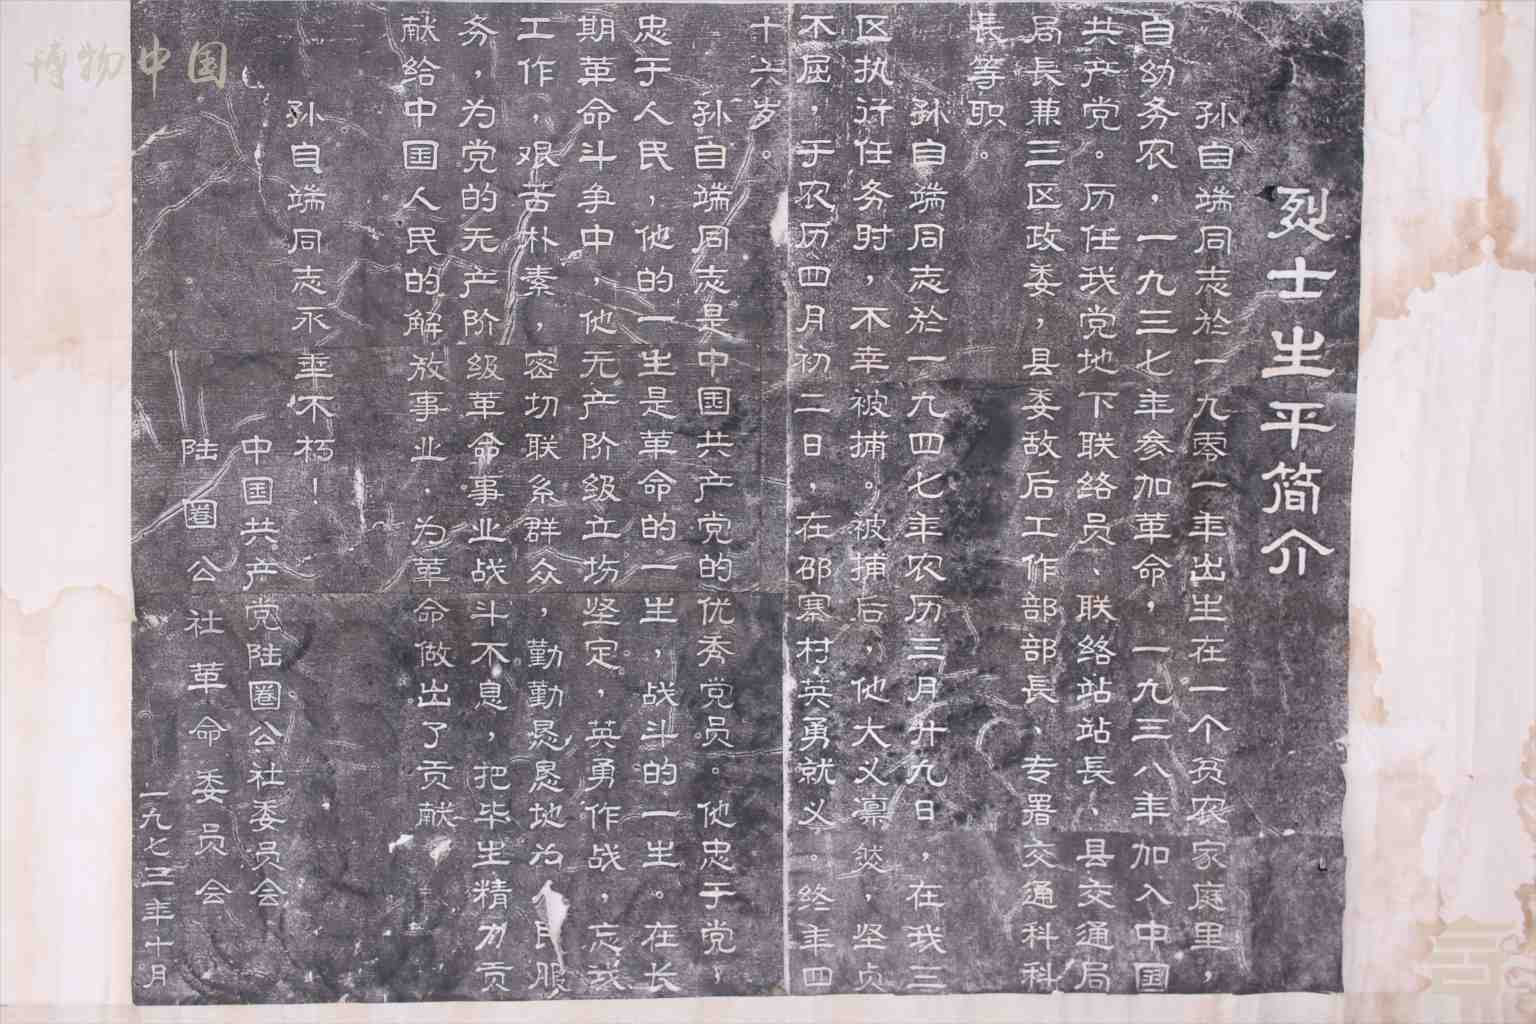 烈士生平简介
孙自端同志於一九零一年出生在一个贫农家庭里，
自幼务农，一九三七年参加革命，一九三八年加入中国
共产党。历任我党地下联络员、联络站站長、县交通局
局長兼三区政委，县委敌后工作部部長、专署交通科科
長等职。
孙自端同志於一九四七年农历三月廿九日，在我三
区执行任务时，不幸被捕。被捕后，他大义凛然，坚贞
不屈，于农历四月初二日，在邵寨村英勇就义。终年四
十六岁。
孙自端同志是中国共产党的优秀党员。他忠于党，
忠于人民，他的一生是革命的一生，战斗的一生。在长
期革命斗争中，他无产阶级立场坚定，英勇作战，忘我
工作，艰苦朴素，密切联系群众，勤勤恳恳地为人民服
务，为党的无产阶级革命事业战斗不息，把毕生精力贡
献给中国人民的解放事业，为革命做出了贡献。
孙自端同志永垂不朽！
中国共产党陆圈公社委员会
陆圈公社革命委员会
一九七三年十月
博物中国